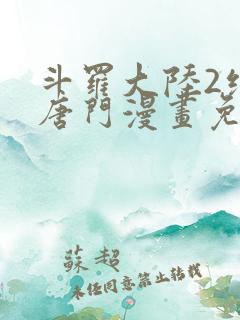 斗羅大陸2
唐門漫畫免
蘇超
未任同意禁止轉載